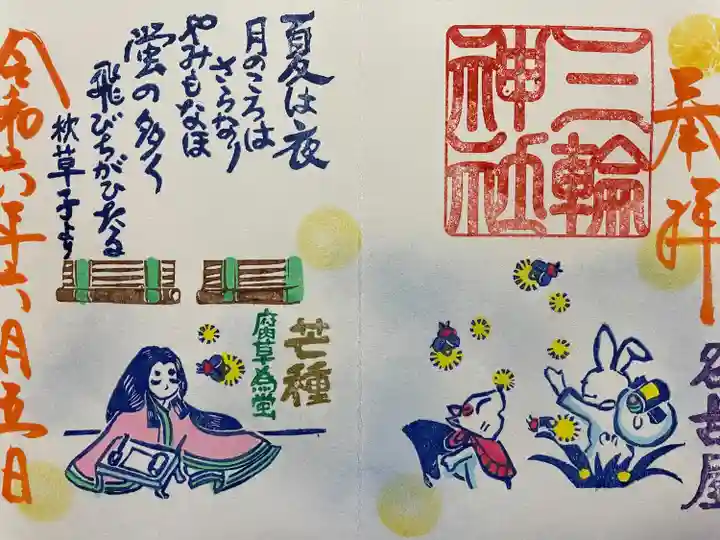 奉拝
三輪
神社
名古屋
夏は夜
月のころは
さらなり
やみもなほ
蛍の多く
飛びちがひたる
枕草子より
芒種
腐草為蛍
令和六年六月五日